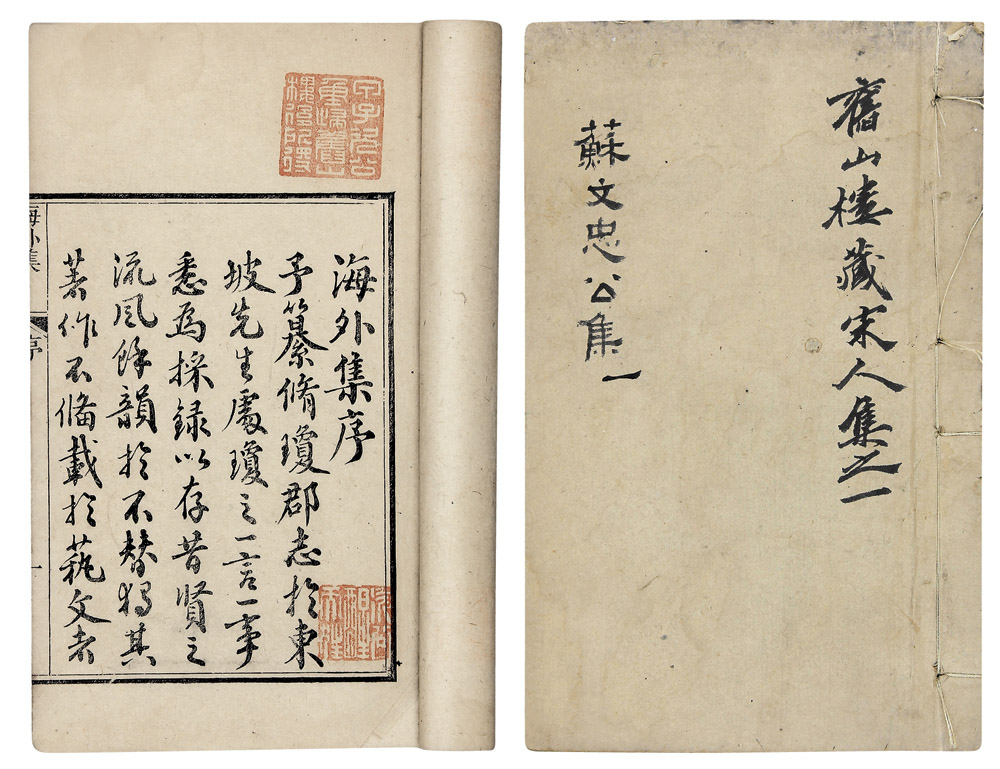 舊山樓藏宋人集之一
蘇文忠公集一
海外集序
予纂脩瓊郡志於東
坡先生處瓊之一言一事
悉為採録以存昔賢之
流風餘韻於不替獨其
著作不備載於藝文者
海外集
序
一